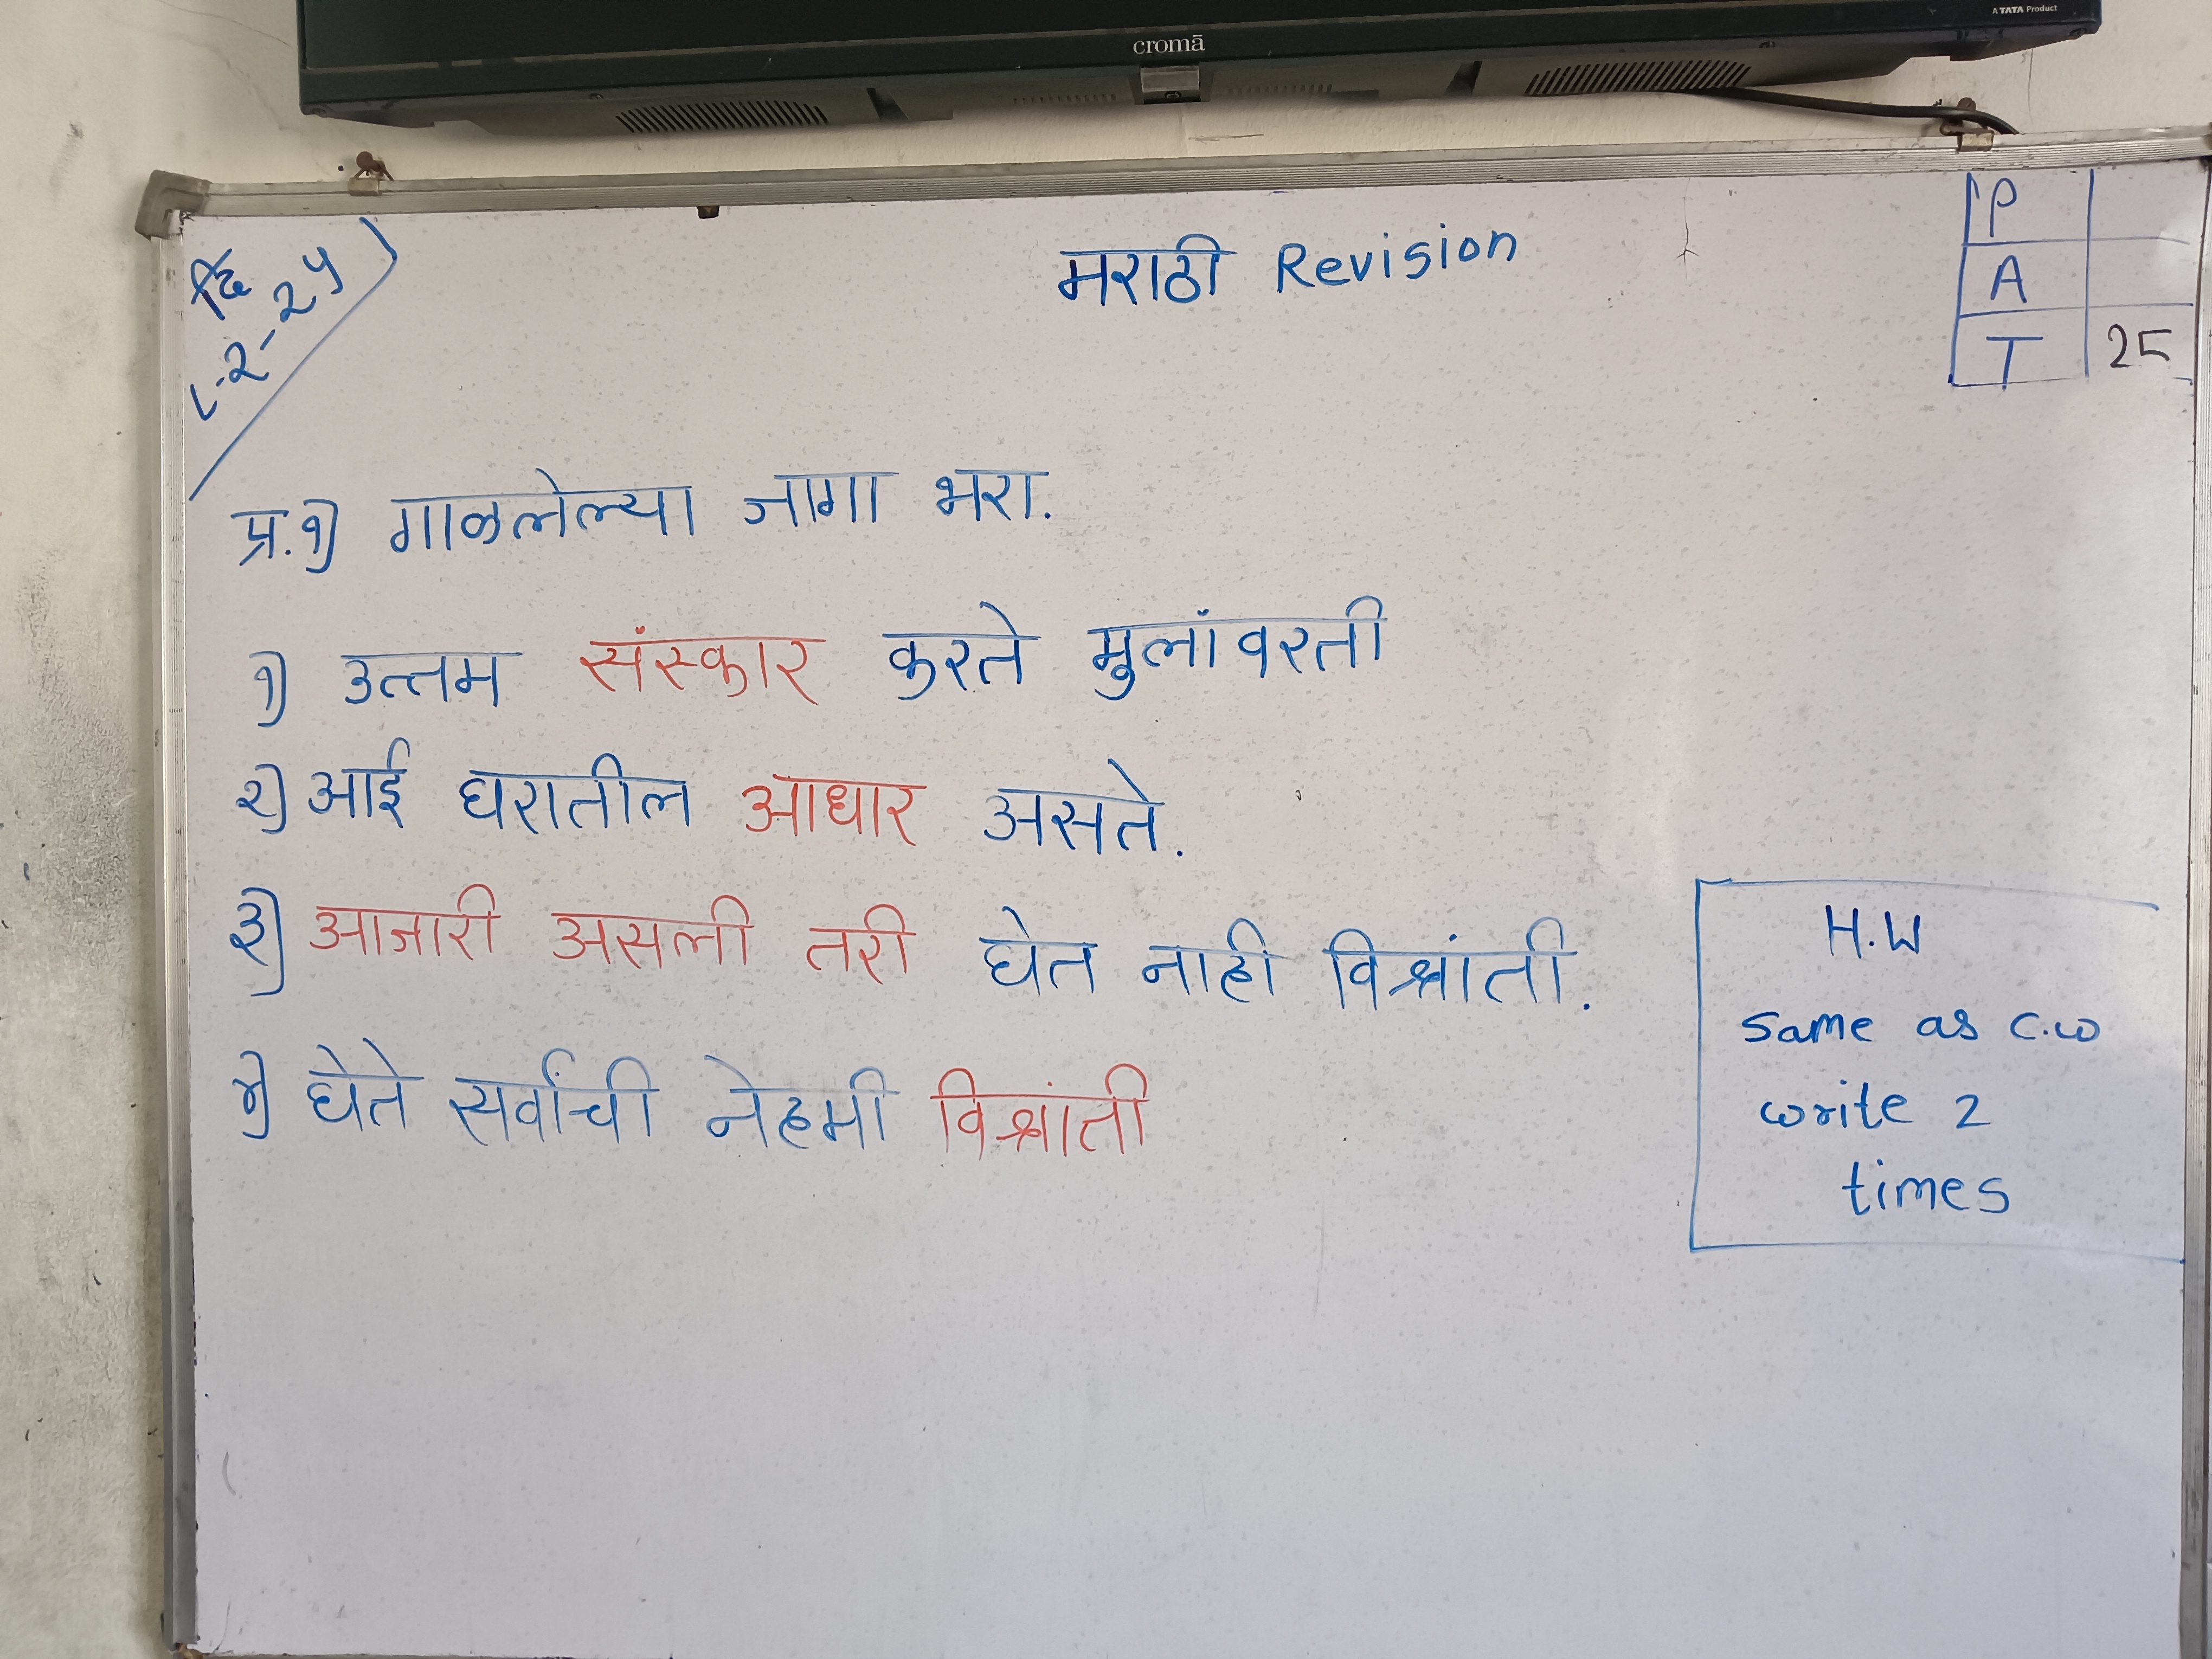 A TATA Product
cromā
दि
८-२-२५
मराठी Revision
P
A
T 25
प्र.१) गाळलेल्या जागा भरा.
१) उत्तम संस्कार करते मुलांवरती
२) आई घरातील आधार असते.
३) आजारी असली तरी घेत नाही विश्रांती.
४) घेते सर्वांची नेहमी विश्रांती
H.W
Same as C.W
write 2
times